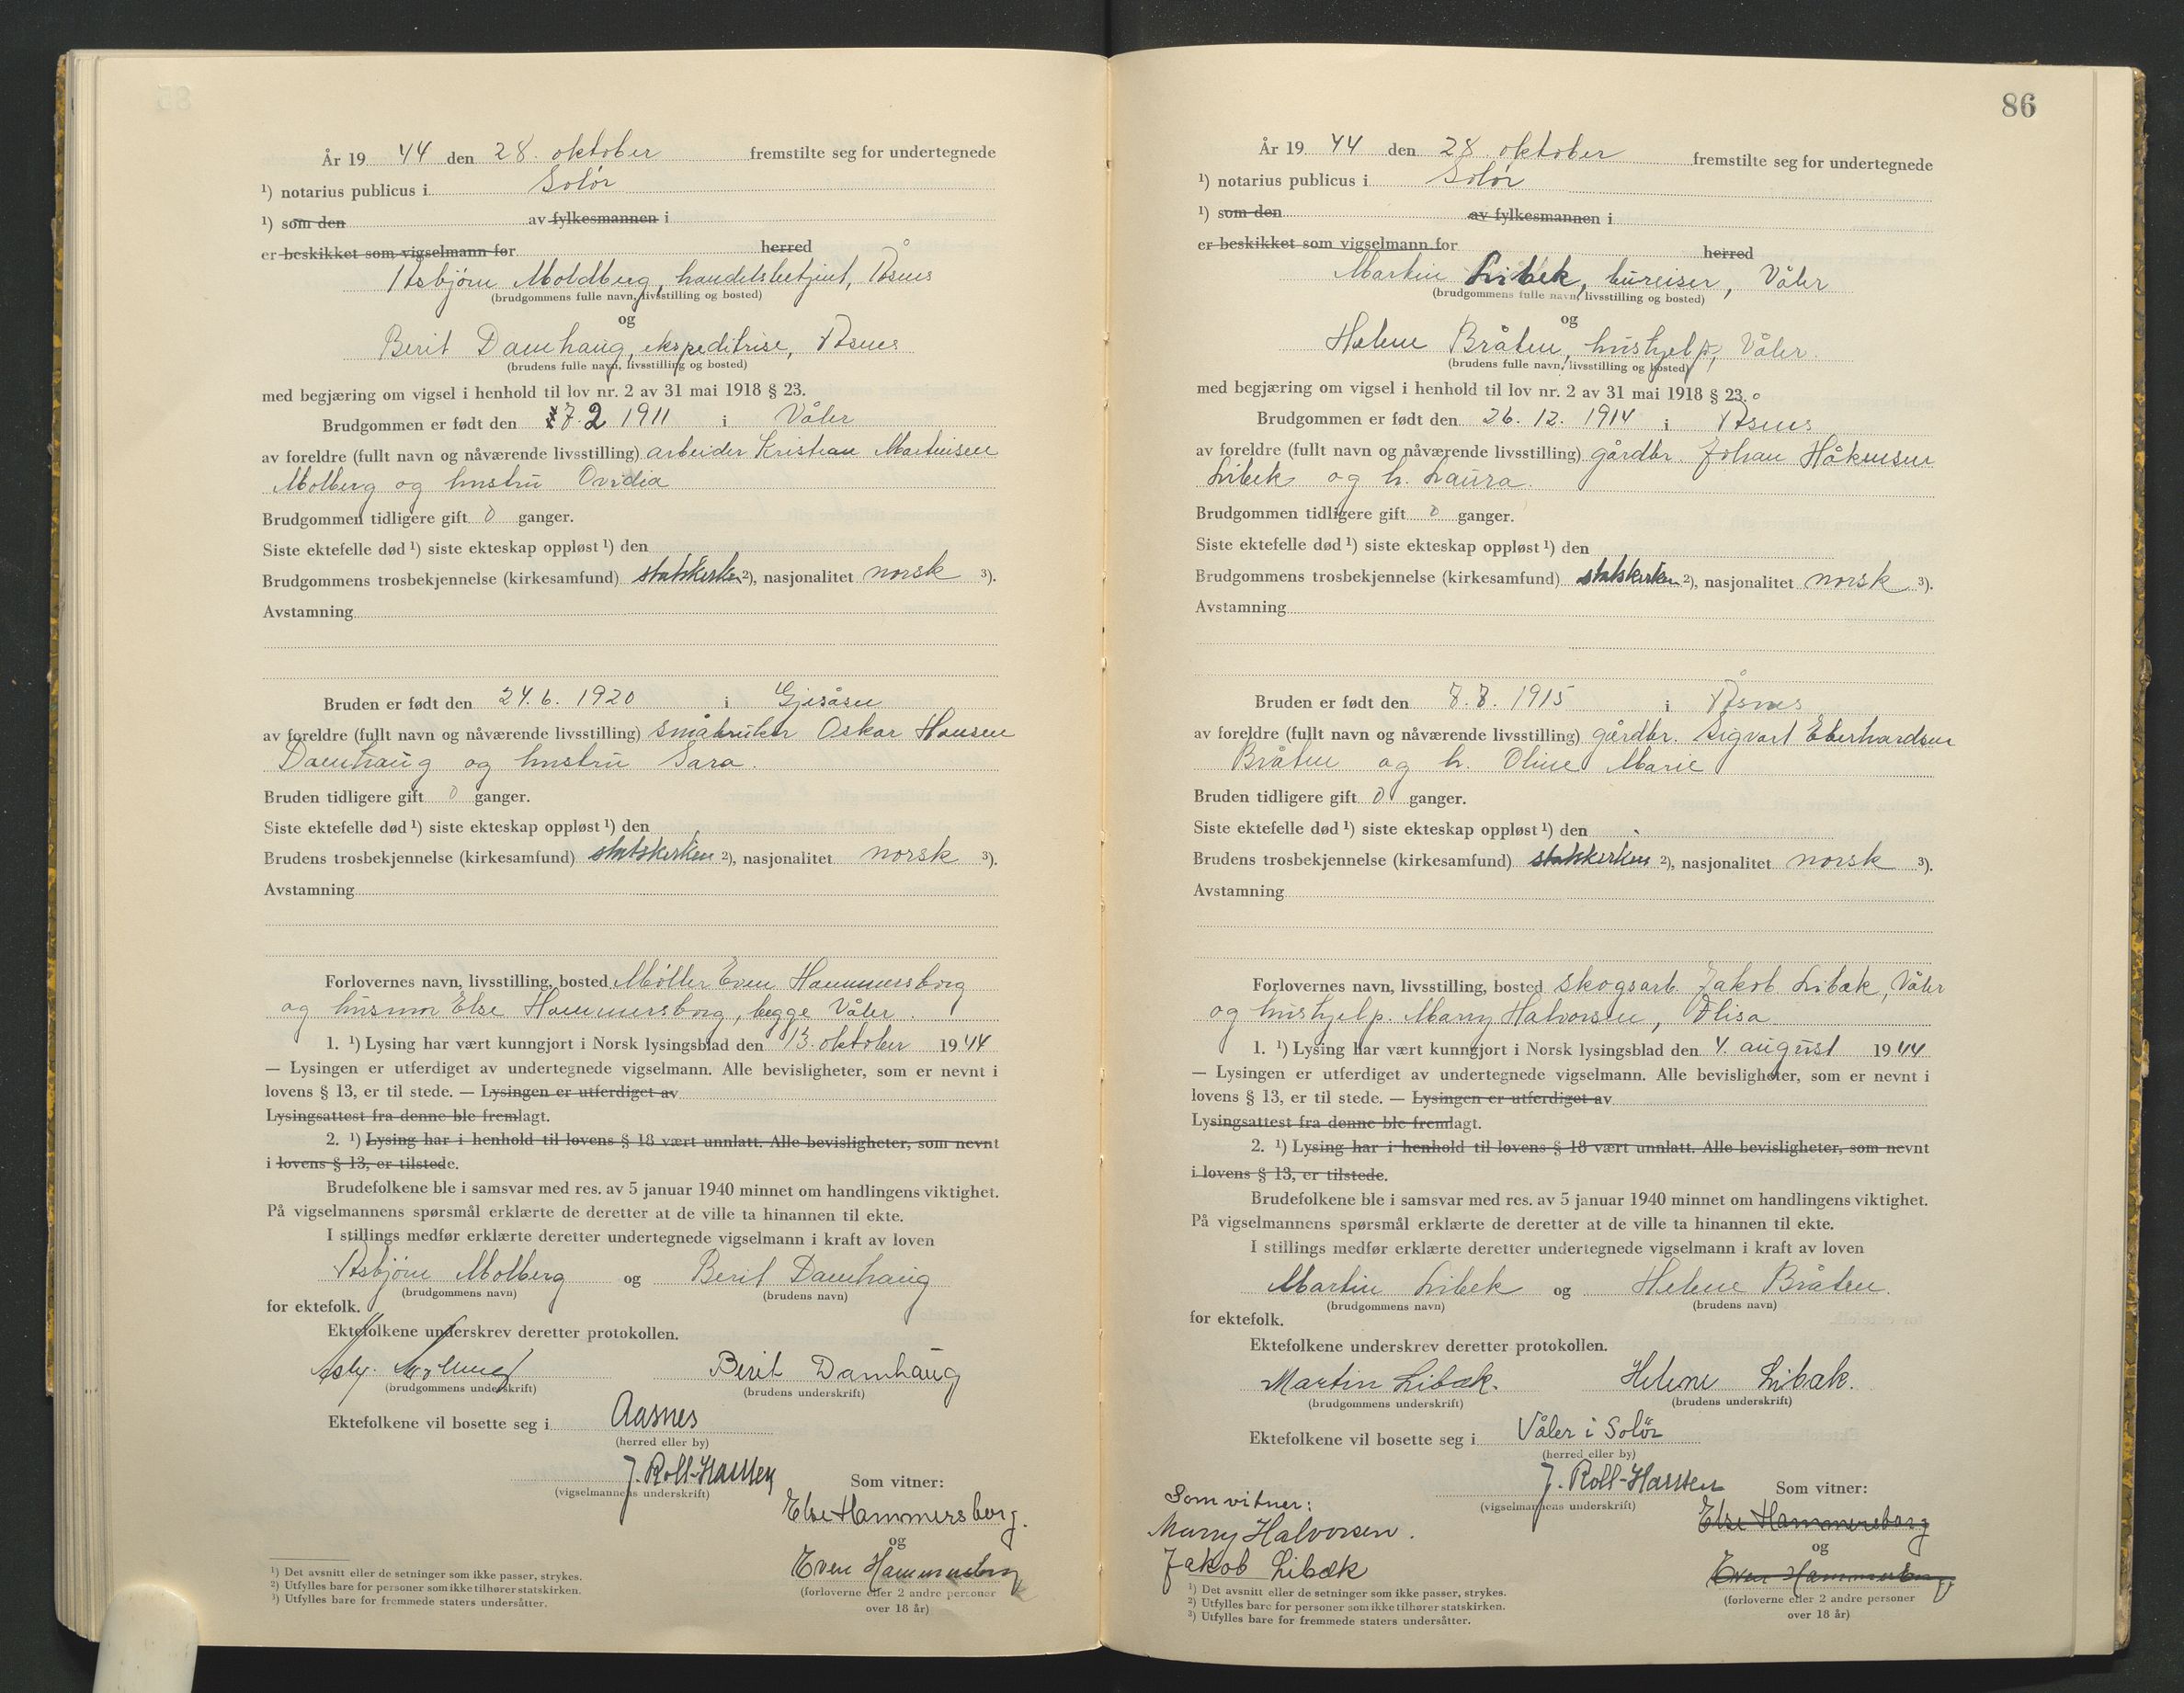 År 19 44 den 28. oktober fremstilte seg for undertegnede
¹) notarius publicus i Solør
¹) som den av fylkesmannen i
er beskikket som vigselmann for herred
Asbjørn Moldberg, handelsbetjent, Åsnes
(brudgommens fulle navn, livsstilling og bosted)
og
Berit Damhaug, ekspeditrise, Åsnes
(brudens fulle navn, livsstilling og bosted)
med begjæring om vigsel i henhold til lov nr. 2 av 31 mai 1918 § 23.
Brudgommen er født den 7. 2 1911 i Våler
av foreldre (fullt navn og nåværende livsstilling) arbeider Kristian Martinsen
Molberg og hustru Ovidia
Brudgommen tidligere gift 0 ganger.
Siste ektefelle død ¹) siste ekteskap oppløst ¹) den
Brudgommens trosbekjennelse (kirkesamfund) statskirken ²), nasjonalitet norsk ³).
Avstamning
Bruden er født den 24. 6. 1920 i Gjesåsen
av foreldre (fullt navn og nåværende livsstilling) småbruker Oskar Hansen
Damhaug og hustru Sara.
Bruden tidligere gift 0 ganger.
Siste ektefelle død ¹) siste ekteskap oppløst ¹) den
Brudens trosbekjennelse (kirkesamfund) statskirken ²), nasjonalitet norsk ³).
Avstamning
Forlovernes navn, livsstilling, bosted Møller Even Hammersborg
og husmor Else Hammersborg, begge Våler.
1. ¹) Lysing har vært kunngjort i Norsk lysingsblad den 13. oktober 19 44
— Lysingen er utferdiget av undertegnede vigselmann. Alle bevisligheter, som er nevnt i
lovens § 13, er til stede. — Lysingen er utferdiget av
Lysingsattest fra denne ble fremlagt.
2. ¹) Lysing har i henhold til lovens § 18 vært unnlatt. Alle bevisligheter, som nevnt
i lovens § 13, er tilstede.
Brudefolkene ble i samsvar med res. av 5 januar 1940 minnet om handlingens viktighet.
På vigselmannens spørsmål erklærte de deretter at de ville ta hinannen til ekte.
I stillings medfør erklærte deretter undertegnede vigselmann i kraft av loven
Asbjørn Molberg og Berit Damhaug
(brudgommens navn) (brudens navn)
for ektefolk.
Ektefolkene underskrev deretter protokollen.
Asbj. Molberg Berit Damhaug
(brudgommens underskrift) (brudens underskrift)
Ektefolkene vil bosette seg i Aasnes
(herred eller by)
J. Roll-Hansen Som vitner:
(vigselmannens underskrift)
Else Hammersborg.
og
Even Hammersborg
(forloverne eller 2 andre personer
over 18 år)
¹) Det avsnitt eller de setninger som ikke passer, strykes.
²) Utfylles bare for personer som ikke tilhører statskirken.
³) Utfylles bare for fremmede staters undersåtter.
86
År 19 44 den 28. oktober fremstilte seg for undertegnede
¹) notarius publicus i Solør
¹) som den av fylkesmannen i
er beskikket som vigselmann for herred
Martin Libek, bureiser, Våler
(brudgommens fulle navn, livsstilling og bosted)
og
Helene Bråten, hushjelp, Våler.
(brudens fulle navn, livsstilling og bosted)
med begjæring om vigsel i henhold til lov nr. 2 av 31 mai 1918 § 23.
Brudgommen er født den 26. 12. 1914 i Åsnes
av foreldre (fullt navn og nåværende livsstilling) gårdbr. Johan Håkensen
Libek og h. Laura.
Brudgommen tidligere gift 0 ganger.
Siste ektefelle død ¹) siste ekteskap oppløst ¹) den
Brudgommens trosbekjennelse (kirkesamfund) statskirken ²), nasjonalitet norsk ³).
Avstamning
Bruden er født den 7. 7. 1915 i Åsnes
av foreldre (fullt navn og nåværende livsstilling) gårdbr. Sigvart Eberhardsen
Bråten og h. Oline Marie
Bruden tidligere gift 0 ganger.
Siste ektefelle død ¹) siste ekteskap oppløst ¹) den
Brudens trosbekjennelse (kirkesamfund) statskirken ²), nasjonalitet norsk ³).
Avstamning
Forlovernes navn, livsstilling, bosted skogsarb. Jakob Libæk, Våler
og hushjelp. Marry Halvorsen, Flisa
1. ¹) Lysing har vært kunngjort i Norsk lysingsblad den 4. august 19 44
— Lysingen er utferdiget av undertegnede vigselmann. Alle bevisligheter, som er nevnt i
lovens § 13, er til stede. — Lysingen er utferdiget av
Lysingsattest fra denne ble fremlagt.
2. ¹) Lysing har i henhold til lovens § 18 vært unnlatt. Alle bevisligheter, som nevnt
i lovens § 13, er tilstede.
Brudefolkene ble i samsvar med res. av 5 januar 1940 minnet om handlingens viktighet.
På vigselmannens spørsmål erklærte de deretter at de ville ta hinannen til ekte.
I stillings medfør erklærte deretter undertegnede vigselmann i kraft av loven
Martin Libek og Helene Bråten.
(brudgommens navn) (brudens navn)
for ektefolk.
Ektefolkene underskrev deretter protokollen.
Martin Libæk. Helene Libæk.
(brudgommens underskrift) (brudens underskrift)
Ektefolkene vil bosette seg i Våler i Solør
(herred eller by)
J. Roll-Hansen Som vitner:
(vigselmannens underskrift)
Else Hammersborg
og
Even Hammersborg
(forloverne eller 2 andre personer
over 18 år)
Som vitner:
Marry Halvorsen.
Jakob Libæk
¹) Det avsnitt eller de setninger som ikke passer, strykes.
²) Utfylles bare for personer som ikke tilhører statskirken.
³) Utfylles bare for fremmede staters undersåtter.